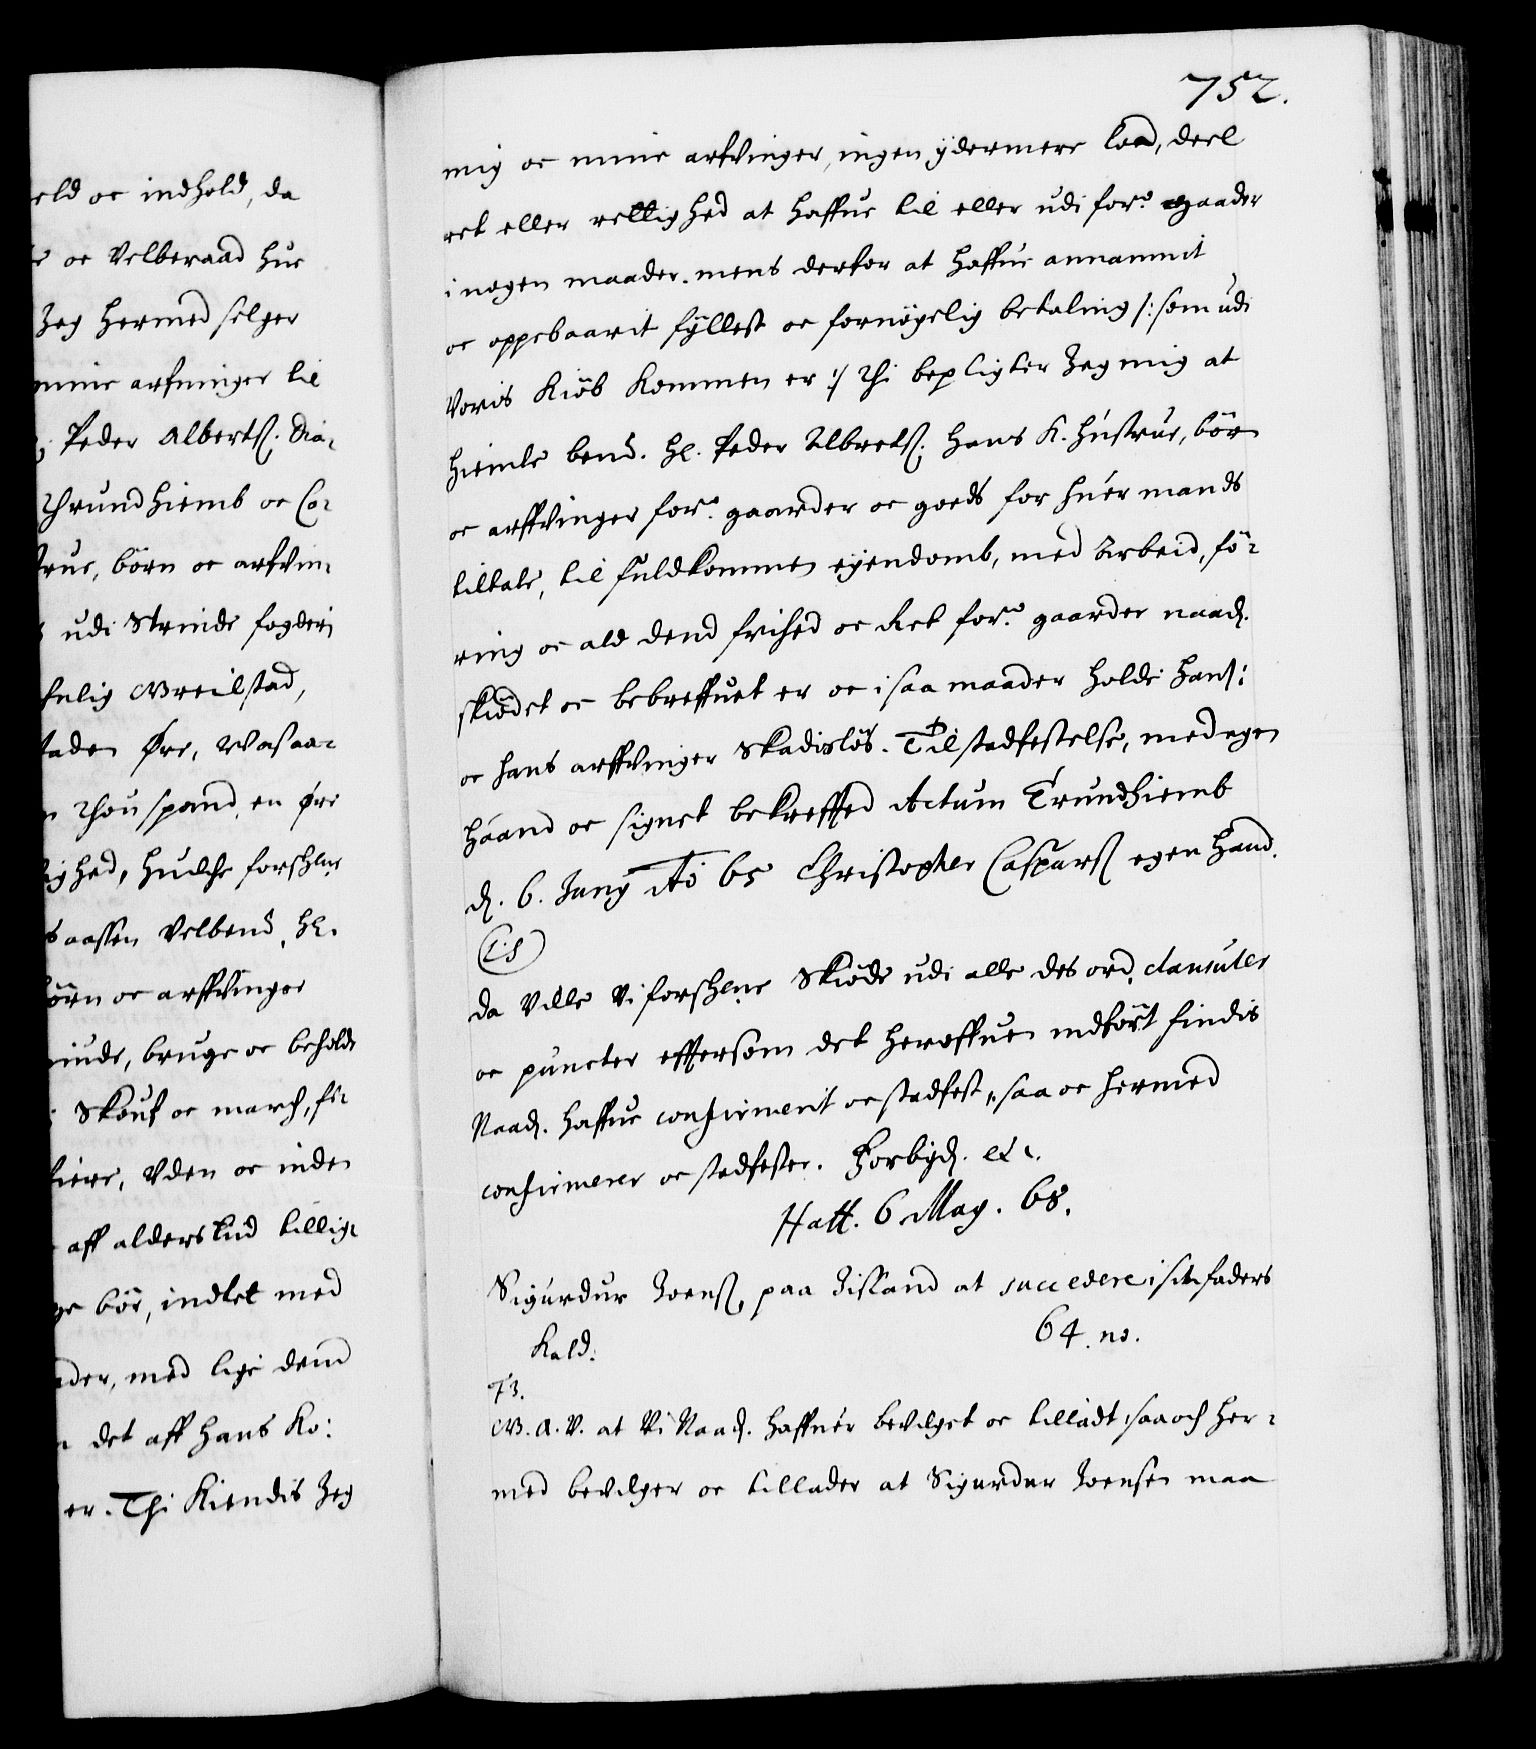 eld oc indhold, da
oc Velberaad hue
Jeg hermed selger
minne arfuinger til
Peder Alberts. Dia-
Thrundhiemb oc Ca-
true, börn oc arfvin-
udi Strinde fogderj
fnlig Wreilstad,
staden Øre, Wasaa-
Thou spand, en øre
ighed, huilche forschne
saassen Velbend. Hl.
börn oc arffvinger
minde, bruge oc beholde
Skouf oc march, fi-
fiere, Vden oc inden
aff alders tid tillig-
ge bör, indtet med
der, med lige dend
det aff hans Ko:
er. Thi Kiendis Jeg
752.
mig oc minne arfvinger, ingen ydermere lod, deel
ret eller rettighed at haffue til eller udi forne gaarder
i nogen maader. mens derfor at haffue annammit
oc oppebaarit fyllest oc fornöyelig betaling /: som udi
Voris Kiöb kommen er :/ Thi bepligter Jeg mig at
hiemle bend. Hl. Peder Albrets. hans K. hustrue, börn
oc arffvinger forne gaarder oc goeds for huer mands
tiltale, til fuldkommen eyendomb, med Arbeid, fö-
ring oc ald dend frihed oc Ret forne gaarder naad.
skiödet oc bebreffuet er oc i saa maader holde hans:
oc hans arffvinger Skadislös. Til stadfestelse, med egen
haand oc signet bekreffted Actum Trundhiemb
d. 6. Junij Ao 65 Christopher Caspars egen haand.
(LS)
da Ville Vi forschne Skiöde udi alle des ord, clausuler
oc puncter effersom det heroffuen indfört findis
Naad. haffue confirmerit oc stadfest, saa oc hermed
confirmerer oc stadfester. Forbiyd. etc.
Haff. 6 May. 68.
Sigurdur Joens. paa Iisland at succedere i sin faders
Kald.
64. no.
F3.
W. A. V. at Vi Naad. haffuer bevilget oc tilladt, saa och her-
med bevilger oc tillader at Sigurdur Joensen maa